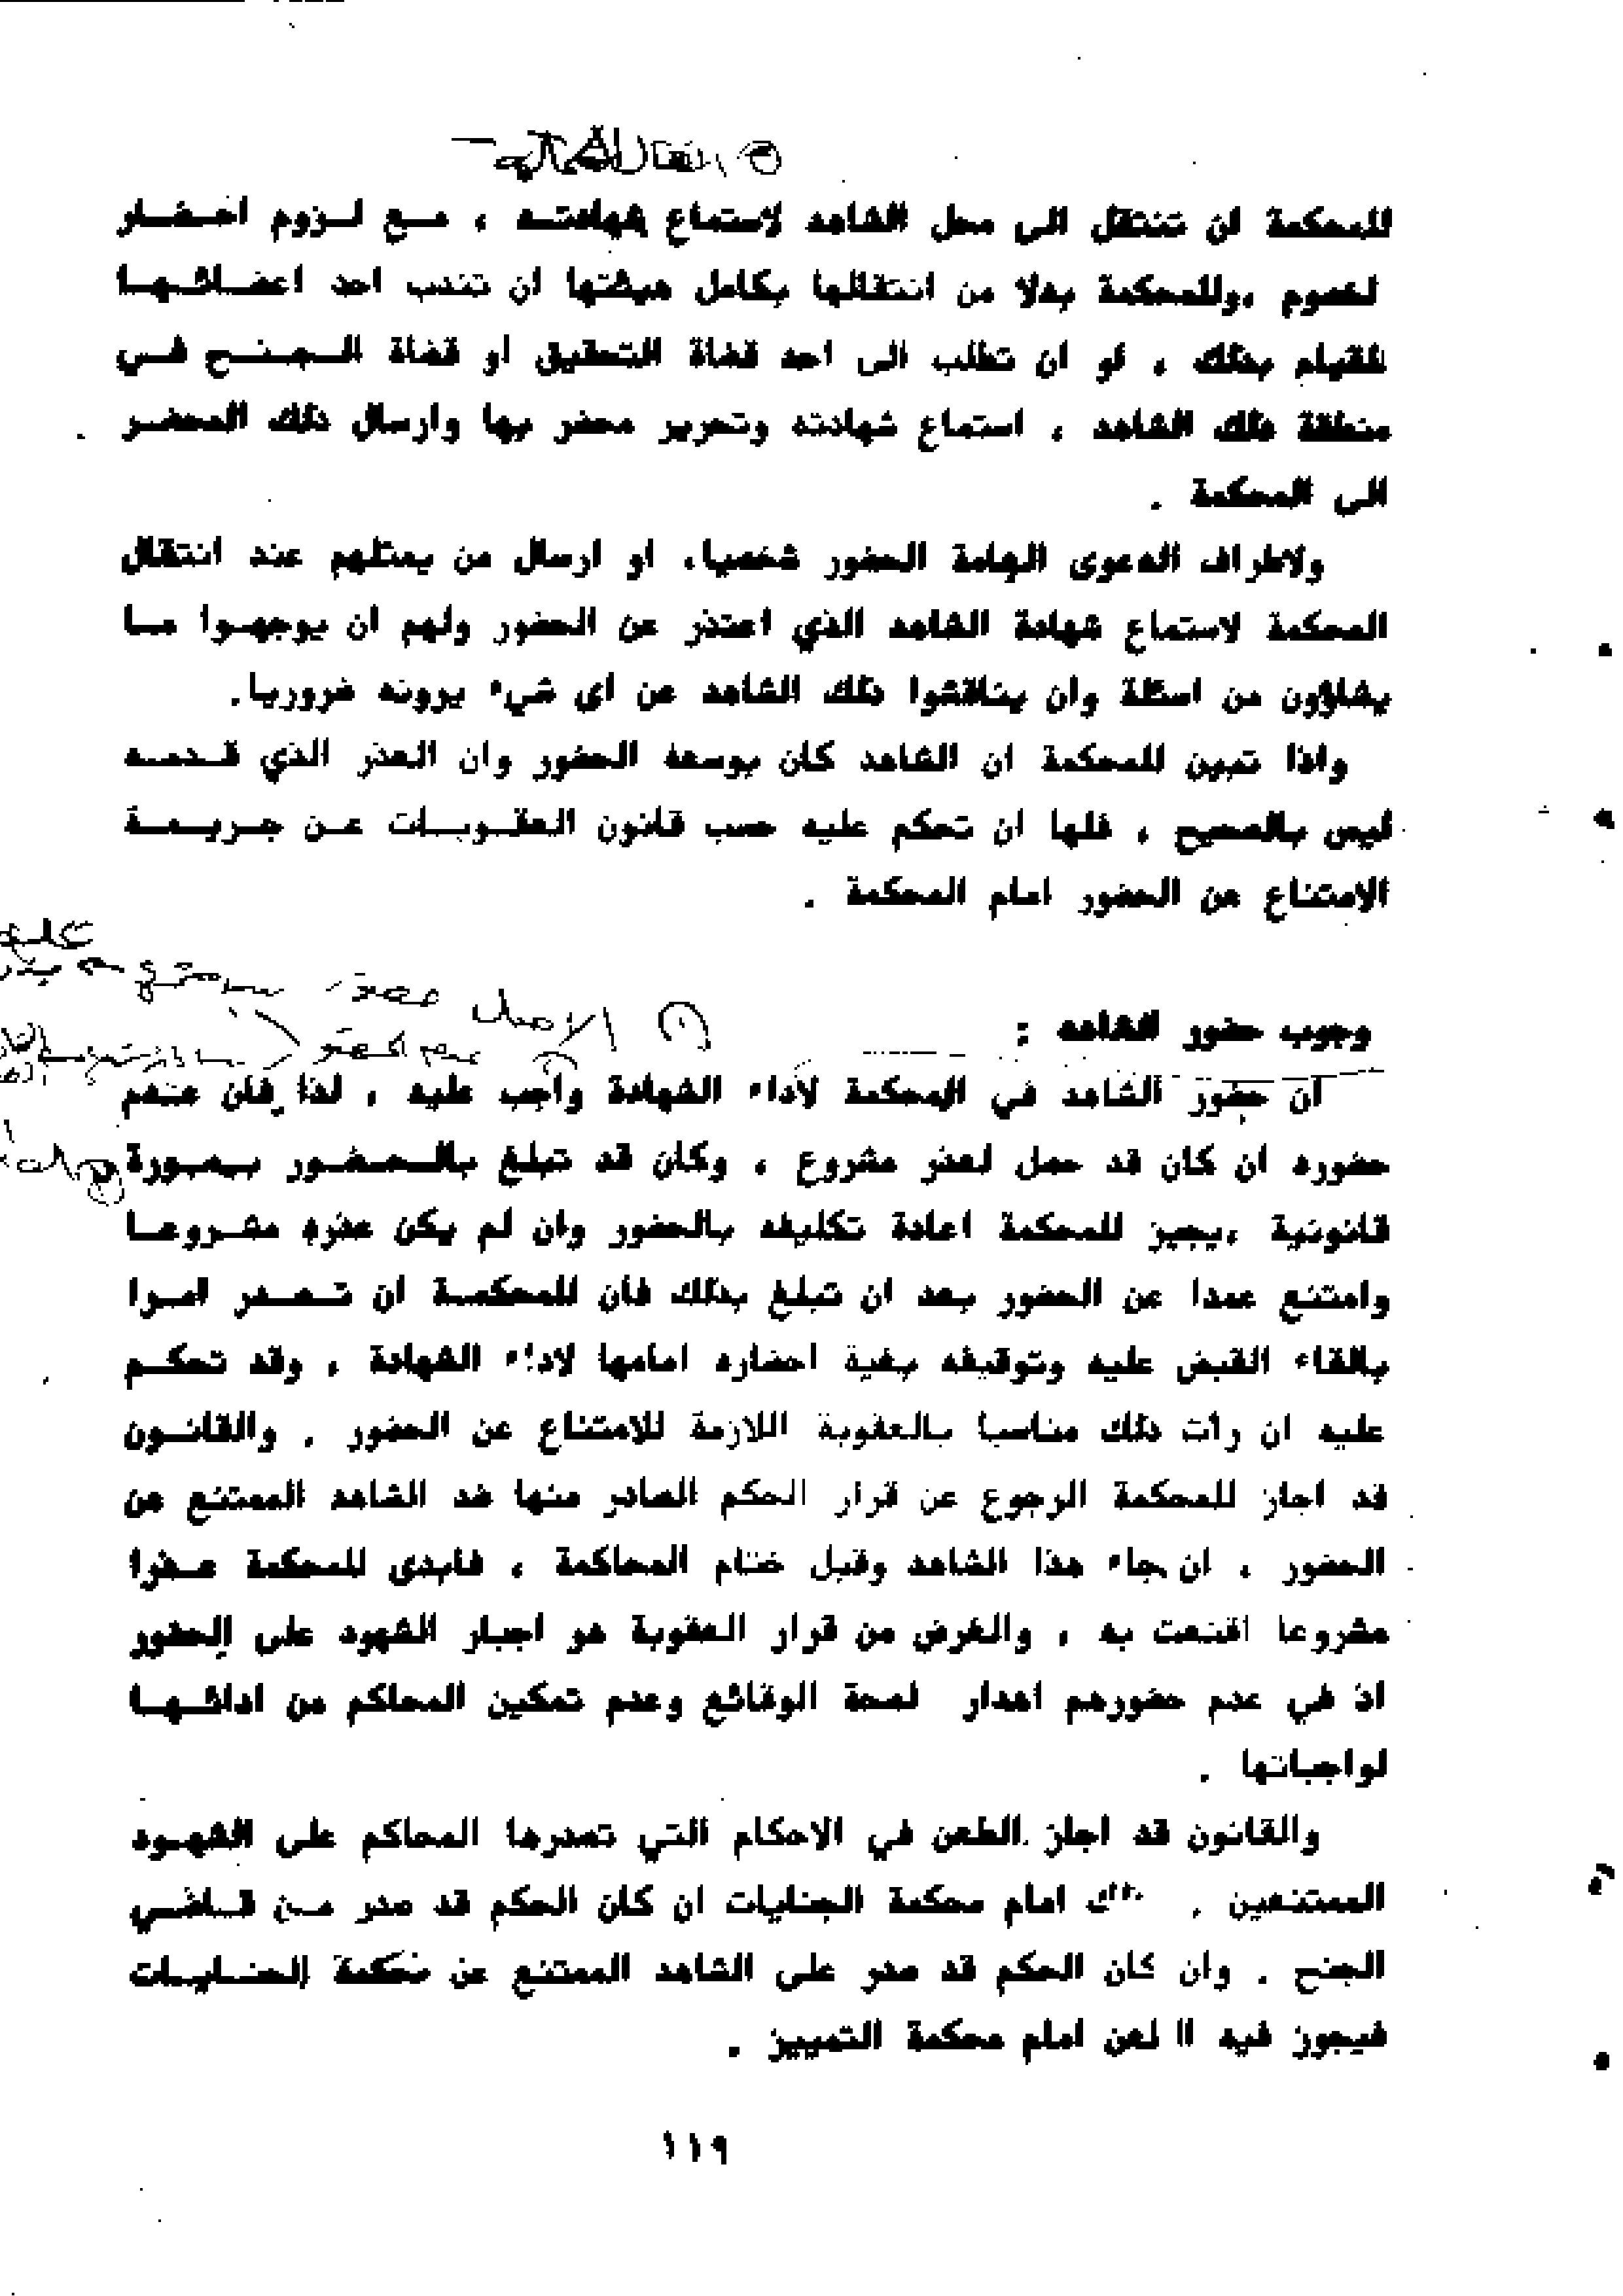 للمحكمة ان تنتقل الى محل الشاهد لاستماع شهادتـه ، مـع لـزوم احـضـار
لخصوم ،وللمحكمة بدلا من انتقالها بكامل هيئتها ان تندب احد اعضـائـهـا
للقيام بذلك ، او ان تطلب الى احد قضاة التحقيق او قضاة الـجـنـح فـي
منطقة ذلك الشاهد ، استماع شهادته وتحرير محضر بها وارسال ذلك المحضـر
الى المحكمة .
ولاطراف الدعوى الهامة الحضور شخصيا، او ارسال من يمثلهم عند انتقال
المحكمة لاستماع شهادة الشاهد الذي اعتذر عن الحضور ولهم ان يوجهـوا مـا
يشاؤون من اسئلة وان يناقشوا ذلك الشاهد عن اي شيء يرونه ضروريا.
واذا تبين للمحكمة ان الشاهد كان بوسعه الحضور وان العذر الذي قـدمـه
ليس بالصحيح ، فلها ان تحكم عليه حسب قانون العقـوبـات عـن جـريـمـة
الامتناع عن الحضور امام المحكمة .
وجوب حضور الشاهد :
ان حضور الشاهد في المحكمة لاداء الشهادة واجب عليه ، لذا فان عدم
حضوره ان كان قد حصل لعذر مشروع ، وكان قد تبلغ بالـحـضـور بـصـورة
قانونية ،يجيز للمحكمة اعادة تكليفه بالحضور وان لم يكن عذره مشـروعـا
وامتنع عمدا عن الحضور بعد ان تبلغ بذلك فان للمحكمـة ان تـصـدر امـرا
بالقاء القبض عليه وتوقيفه بغية احضاره امامها لاداء الشهادة ، وقد تحكـم
عليه ان رات ذلك مناسبا بالعقوبة اللازمة للامتناع عن الحضور . والقانـون
قد اجاز للمحكمة الرجوع عن قرار الحكم الصادر منها ضد الشاهد الممتنع عن
الحضور ، ان جاء هذا الشاهد وقبل ختام المحاكمة ، فابدى للمحكمة عـذرا
مشروعا اقتنعت به ، والغرض من قرار العقوبة هو اجبار الشهود على الحضور
اذ في عدم حضورهم اهدار لصحة الوقائع وعدم تمكين المحاكم من ادائـهـا
لواجباتها .
والقانون قد اجاز الطعن في الاحكام التي تصدرها المحاكم على الشهـود
الممتنعين . امام محكمة الجنايات ان كان الحكم قد صدر مـن قـاضـي
الجنح . وان كان الحكم قد صدر على الشاهد الممتنع عن محكمة الجنـايـات
فيجوز فيه امام محكمة التمييز .
١١٩